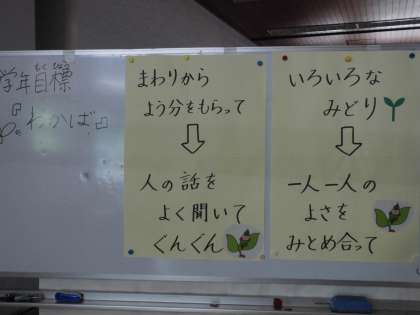 学年目標
『わかば』
まわりから
よう分をもらって
人の話を
よく聞いて
ぐんぐん
いろいろな
みどり
一人一人の
よさを
みとめ合って